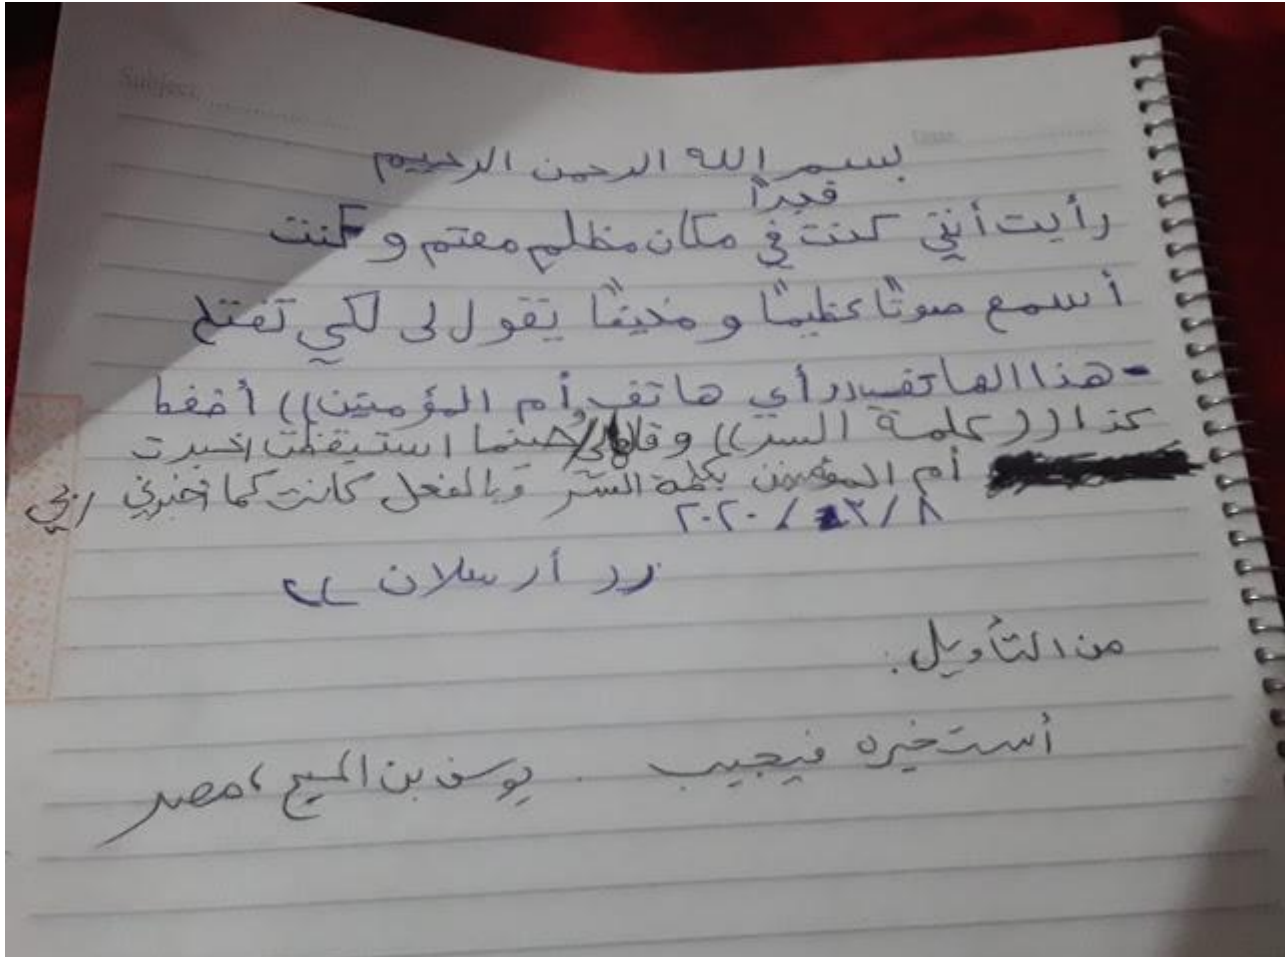 Subject:
Date
بسم الله الرحمن الرحيم
فجراً
رأيت أنني كنت في مكان مظلم معتم و كنت
أسمع صوتًا عظيمًا و مخيفًا يقول لى لكي تفتح
هذا الهاتف ((أي هاتف أم المؤمنين)) أضغط
كذا ((كلمة السر)) و حينما استيقظت اخبرت
أم المؤمنين بكلمة السر وبالفعل كانت كما أخبرني ربي
٨/٣/٢٠٢٠
(( أرسلان ))
من التأويل:
أستخيره فيجيب . يوسف بن المسيح ، مصر